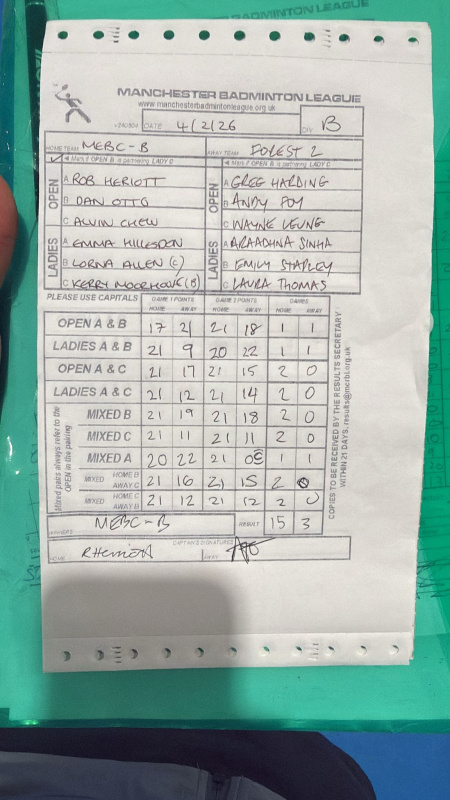 MANCHESTER BADMINTON LEAGUE
www.manchesterbadmintonleague.org.uk
DATE 4/2/26 DIV B
HOME TEAM MEBC-B AWAY TEAM FOREST 2
Mark if OPEN B is partnering LADY C
OPEN A ROB HERIOTT OPEN A GREG HARDING
B DAN OTTO B ANDY POY
C ALVIN CHEW C WAYNE LEUNG
LADIES A EMMA HILLESDON LADIES A ARAADHNA SINHA
B LORNA ALLEN (C) B EMILY STAPLEY
C KERRY MOORHOUSE (B) C LAURA THOMAS
PLEASE USE CAPITALS GAME 1 POINTS GAME 2 POINTS GAMES
HOME AWAY HOME AWAY HOME AWAY
OPEN A & B 17 21 21 18 1 1
LADIES A & B 21 9 20 22 1 1
OPEN A & C 21 17 21 15 2 0
LADIES A & C 21 12 21 14 2 0
MIXED B 21 19 21 18 2 0
MIXED C 21 11 21 11 2 0
MIXED A 20 22 21 1 1
MIXED HOME B AWAY C 21 16 21 15 2 0
MIXED HOME C AWAY B 21 12 21 12 2 0
Mixed pairs always refer to the OPEN in the pairing
WINNERS MEBC-B RESULT 15 3
CAPTAIN'S SIGNATURES
HOME AWAY
COPIES TO BE RECEIVED BY THE RESULTS SECRETARY
WITHIN 21 DAYS.